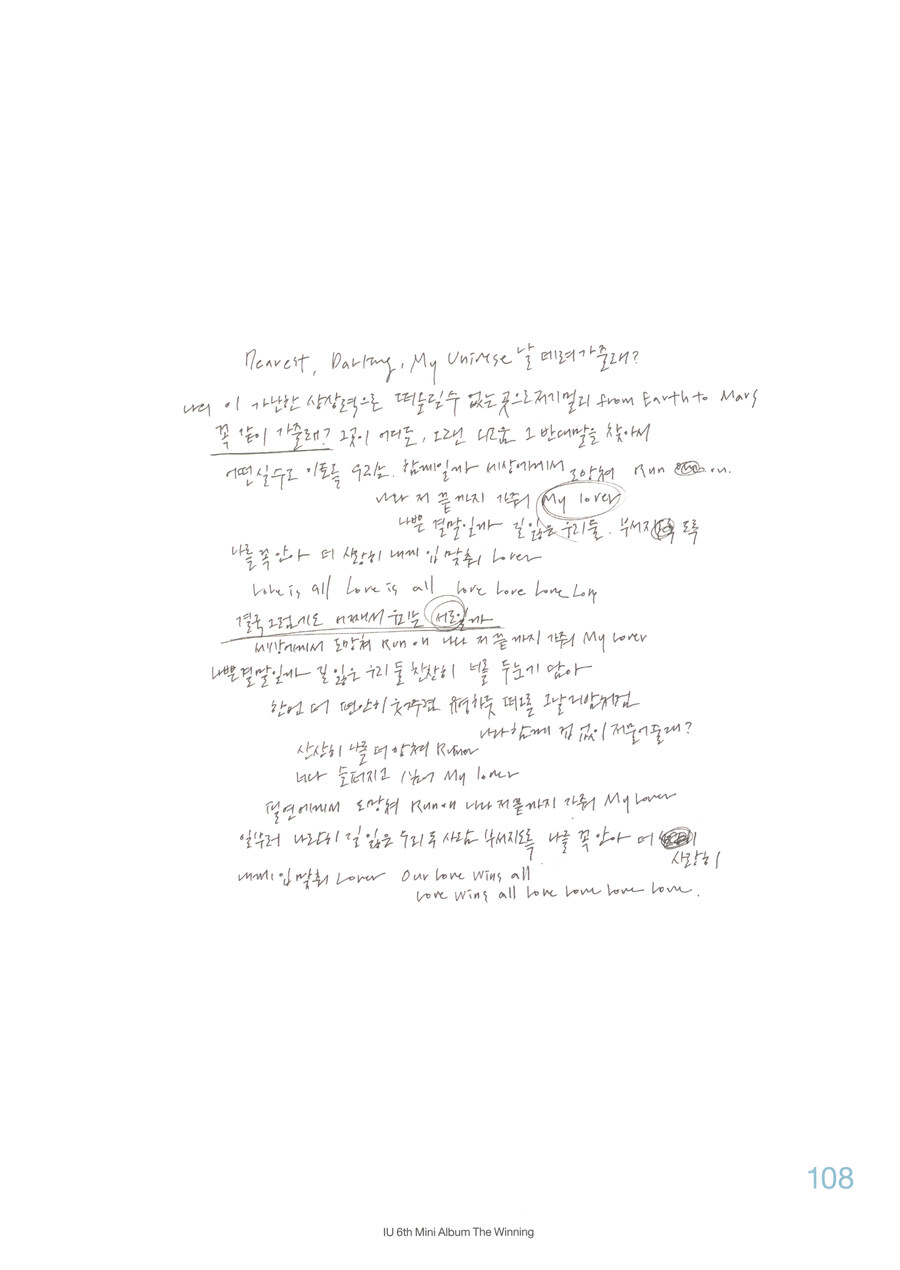 Dearest, Darling, My Universe 날 데려가줄래?
나의 이 가난한 상상력으론 떠올릴 수 없는 곳으로 저기 멀리 from Earth to Mars
꼭 같이 가줄래? 그곳이 어디든, 오랜 외로움 그 반대말을 찾아서
어떤 실수로 이토록 우리는 함께일까 세상에게서 도망쳐 Run on.
나와 저 끝까지 가줘 My lover
나쁜 결말일까 길 잃은 우리 둘. 부서지도록
나를 꼭 안아 더 사랑히 내게 입 맞춰 Lover
Love is all Love is all Love Love Love Love
결국 그럼에도 어째서 우리는 서로일까
세상에게서 도망쳐 Run on 나와 저 끝까지 가줘 My lover
나쁜 결말일까 길 잃은 우리 둘 찬찬히 너를 두 눈에 담아
한 번 더 편안히 웃어주렴 유영하듯 떠오른 그날 그 밤처럼
나와 함께 겁 없이 저물어줄래?
산산히 나를 더 망쳐 Ruiner
너와 슬퍼지고 싶어 My lover
필연에게서 도망쳐 Run on 나와 저 끝까지 가줘 My lover
일부러 나란히 길 잃은 우리 두 사람 부서지도록 나를 꼭 안아 더
사랑히
내게 입 맞춰 Lover Our love wins all
Love wins all Love Love Love Love.
108
IU 6th Mini Album The Winning